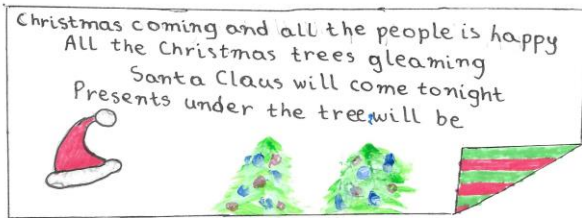 Christmas coming and all the people is happy
All the Christmas trees gleaming
Santa Claus will come tonight
Presents under the tree, will be